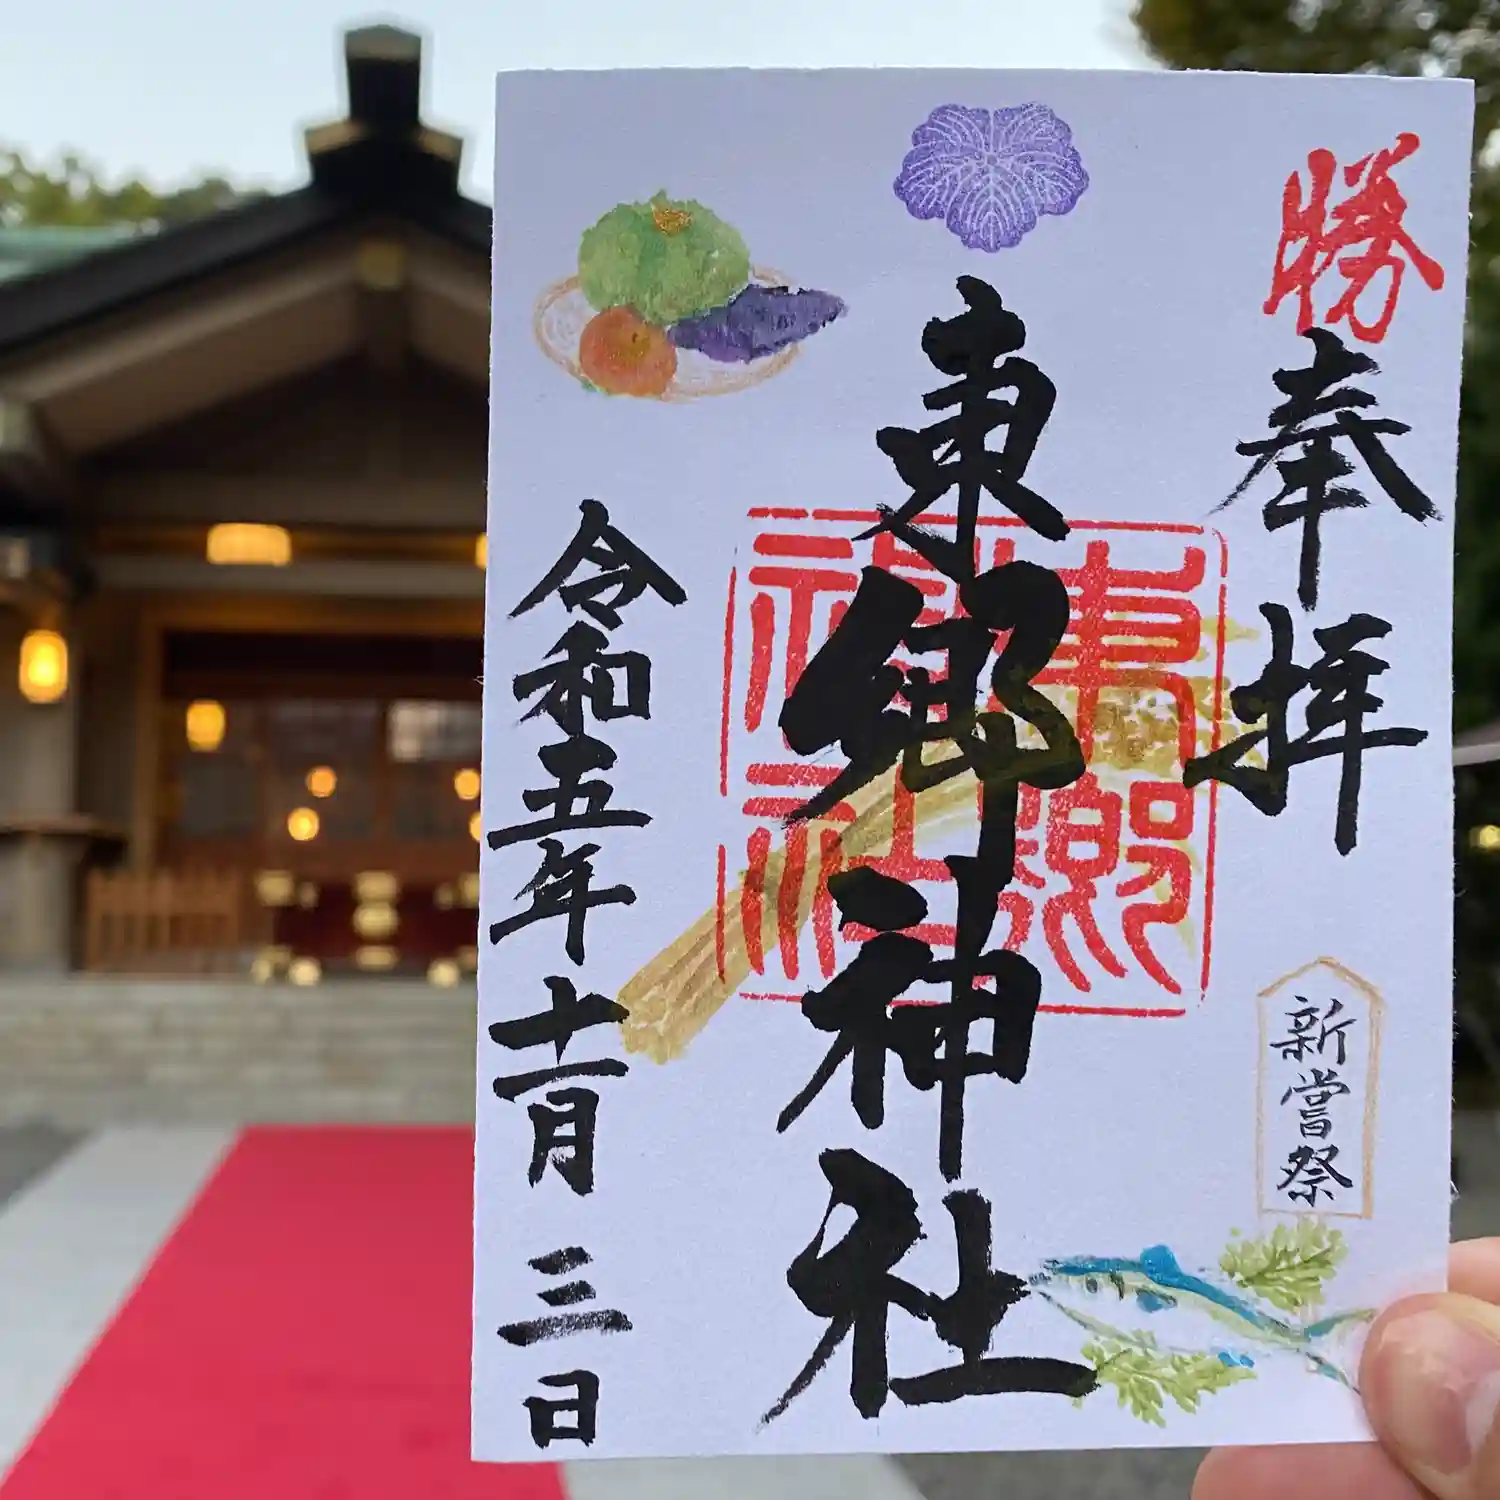 勝
奉拝
新嘗祭
東郷神社
東郷神社
令和五年十一月三日